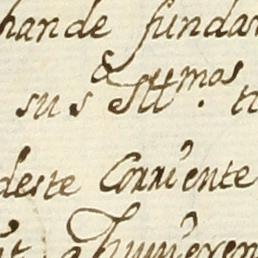 hande fundar
sus Ill.umos
deste Corriente
huuieren